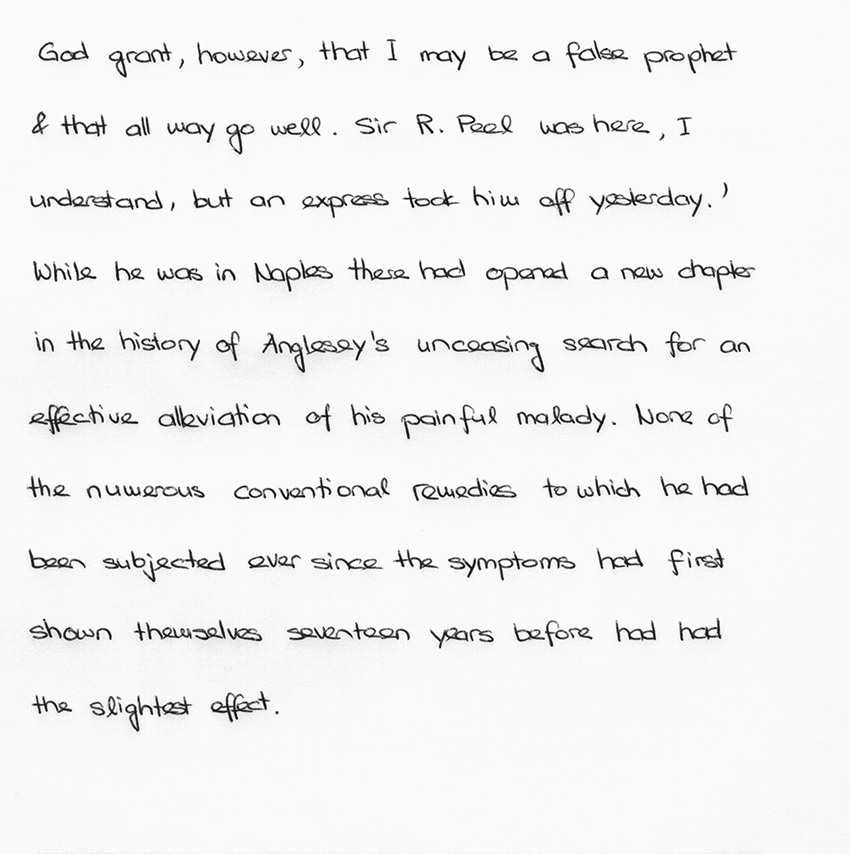 God grant, however, that I may be a false prophet
& that all way go well. Sir R. Peel was here, I
understand, but an express took him off yesterday.'
While he was in Naples there had opened a new chapter
in the history of Anglesey's unceasing search for an
effective alleviation of his painful malady. None of
the numerous conventional remedies to which he had
been subjected ever since the symptoms had first
shown themselves seventeen years before had had
the slightest effect.